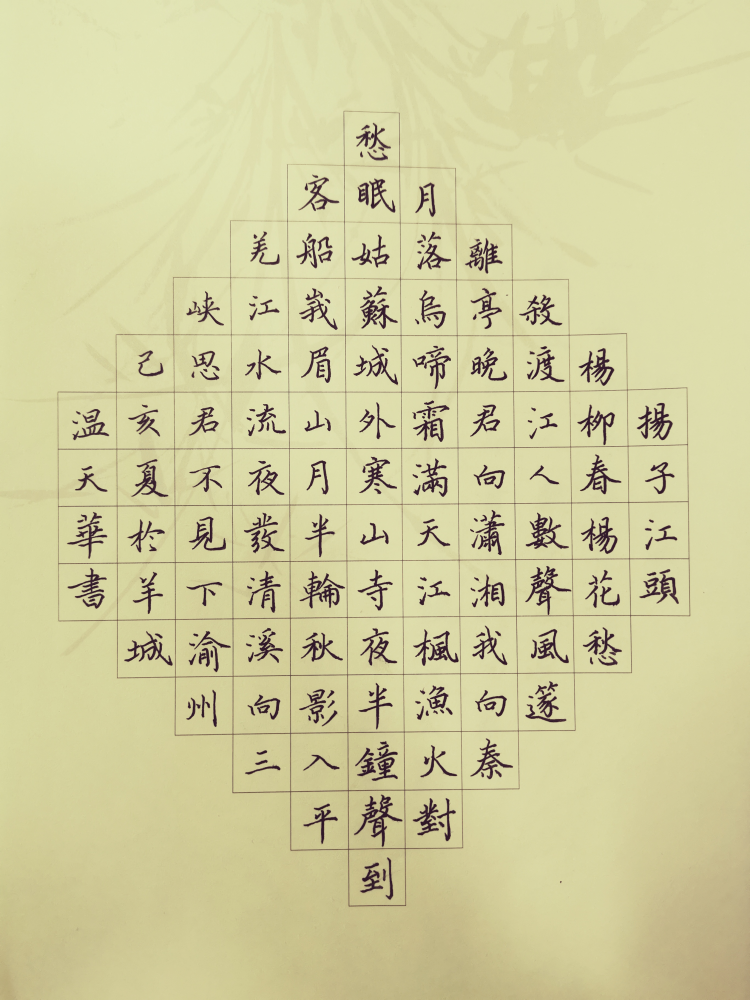 揚子江頭
楊柳春楊花愁
殺渡江人數聲風篴
離亭晚君向瀟湘我向秦
月落烏啼霜滿天江楓漁火對
愁眠姑蘇城外寒山寺夜半鐘聲到
客船峩眉山月半輪秋影入平
羌江水流夜發清溪向三
峽思君不見下渝州
己亥夏於羊城
温天華書